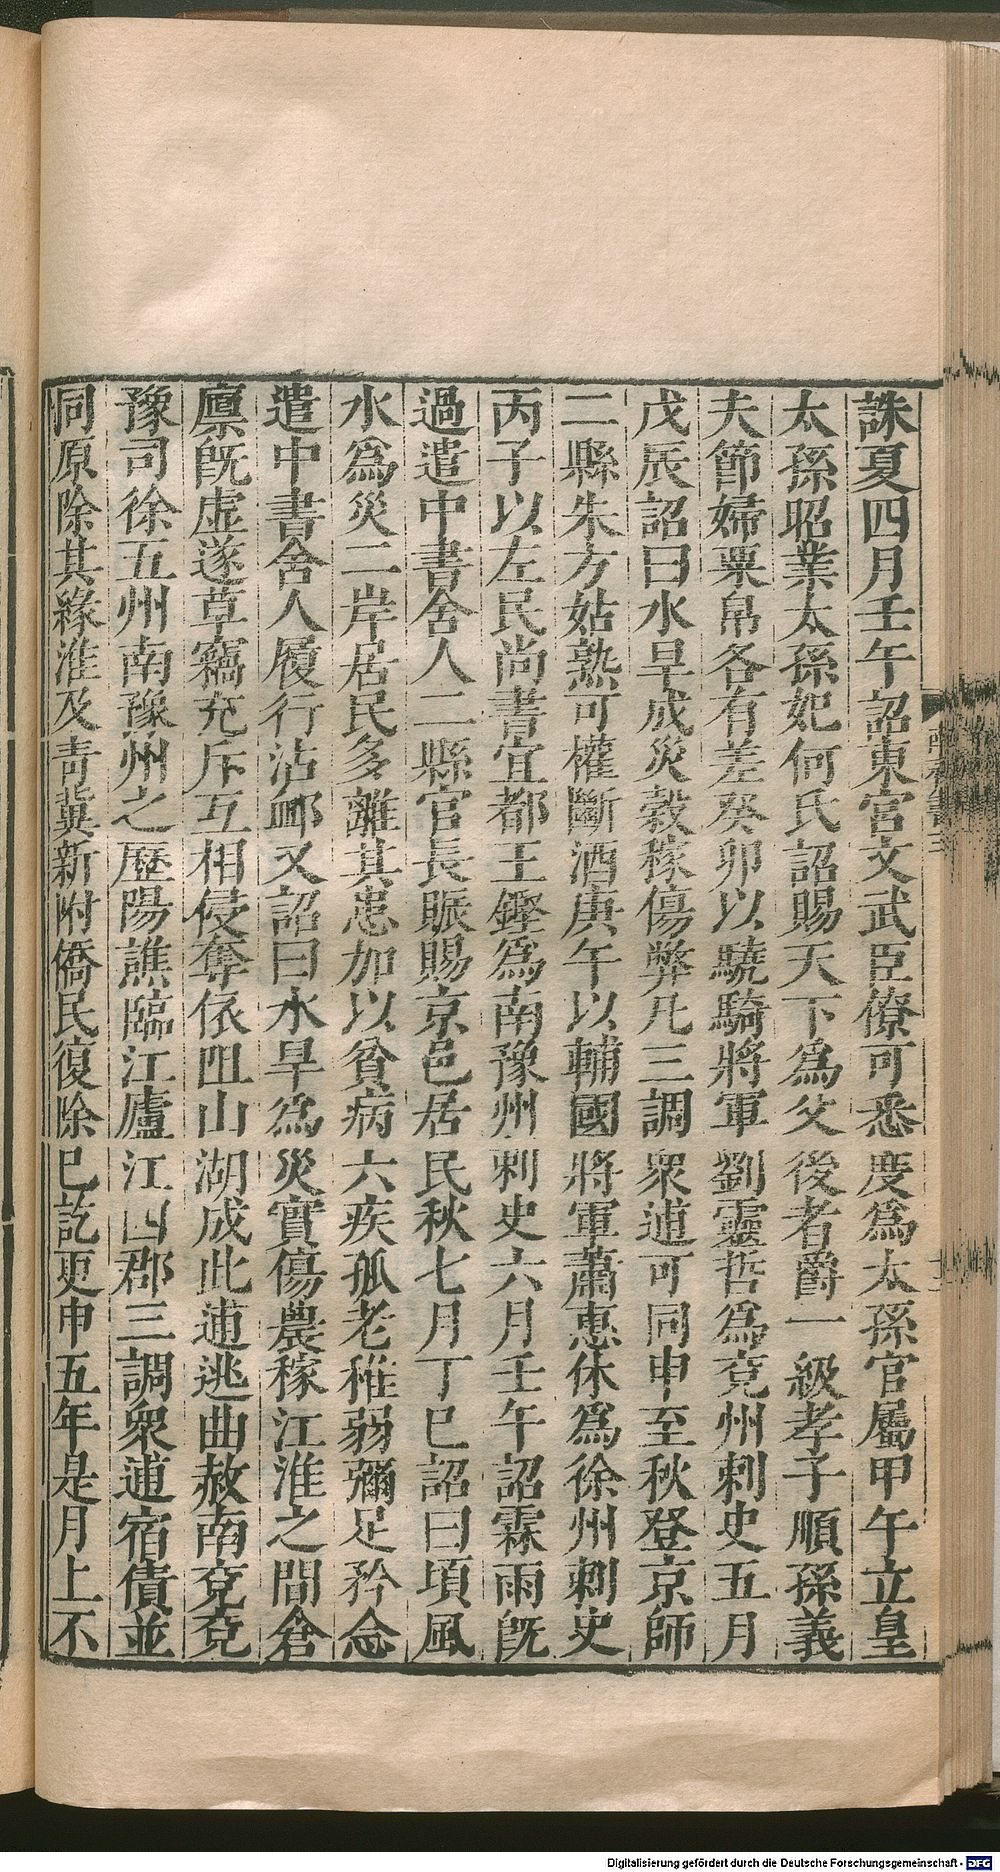 誅夏四月壬午詔東宮文武臣僚可悉度為太孫官屬甲午立皇
太孫昭業太孫妃何氏詔賜天下為父後者爵一級孝子順孫義
夫節婦粟帛各有差癸卯以驍騎將軍劉靈哲為兗州刺史五月
戊辰詔曰水旱成災穀稼傷弊凡三調衆逋可同申至秋登京師
二縣朱方姑熟可權斷酒庚午以輔國將軍蕭惠休為徐州刺史
丙子以左民尚書宜都王鏗為南豫州刺史六月壬午詔霖雨既
過遣中書舍人二縣官長賑賜京邑居民秋七月丁巳詔曰頃風
水為災二岸居民多離其患加以貧病六疾孤老稚弱彌足矜念
遣中書舍人履行沾卹又詔曰水旱為災實傷農稼江淮之間倉
廩既虛遂草竊充斥互相侵奪依阻山湖成此逋逃曲赦南兗兗
豫司徐五州南豫州之歷陽譙臨江廬江四郡三調衆逋宿債並
同原除其緣淮及青冀新附僑民復除已訖更申五年是月上不
Digitalisierung gefördert durch die Deutsche Forschungsgemeinschaft - DFG